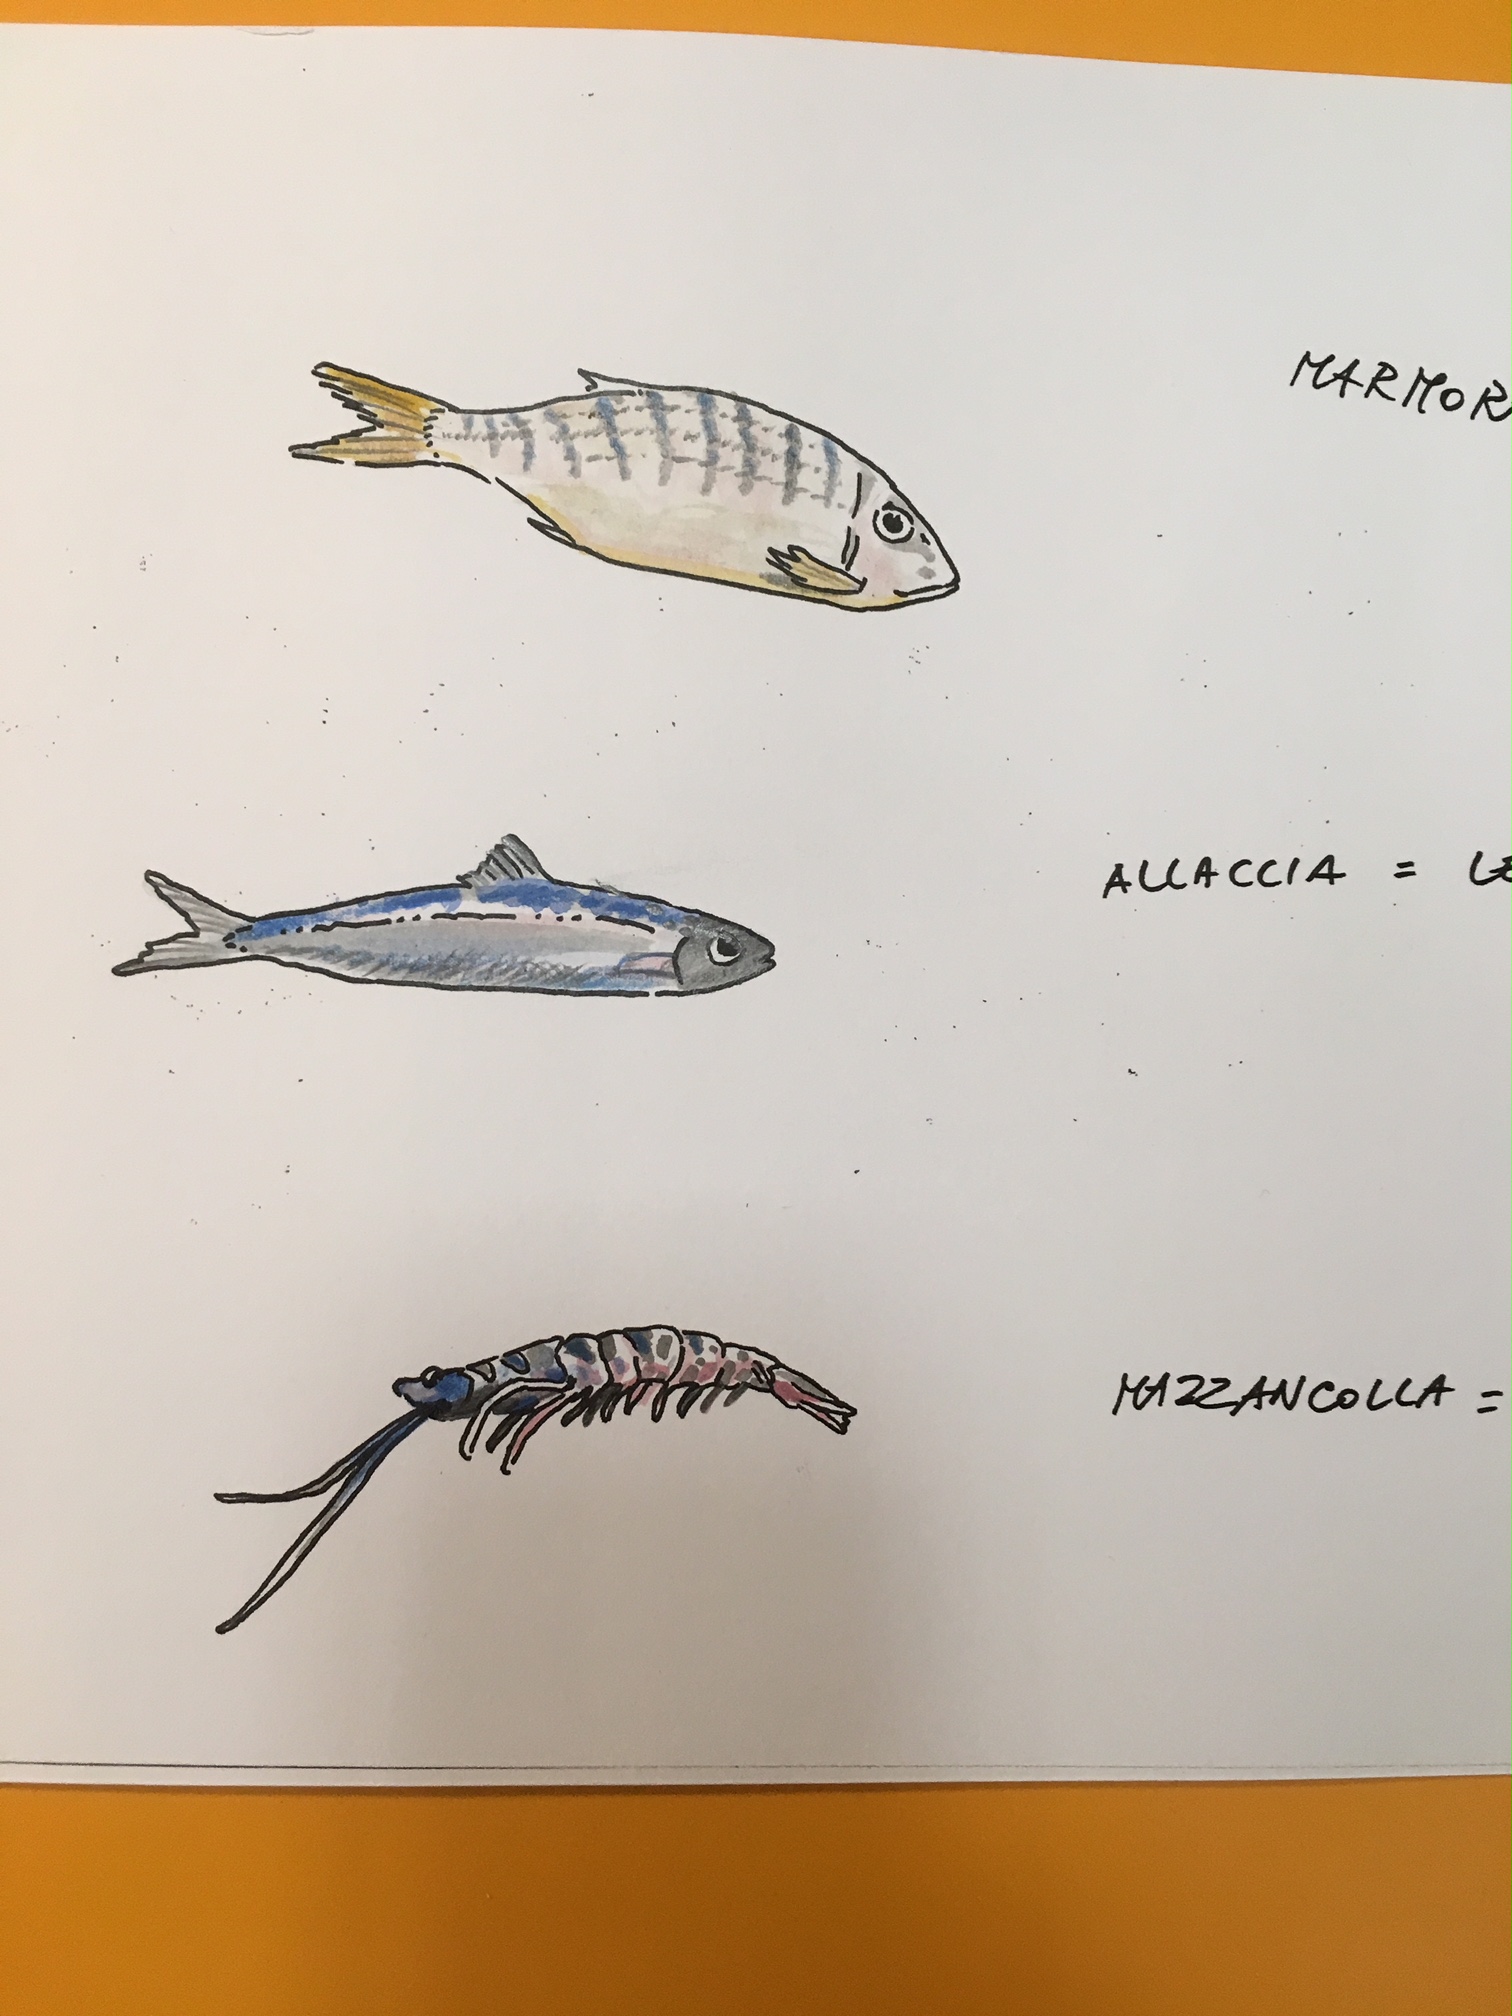 MARMOR
ALLACCIA = LE
MAZZANCOLLA =